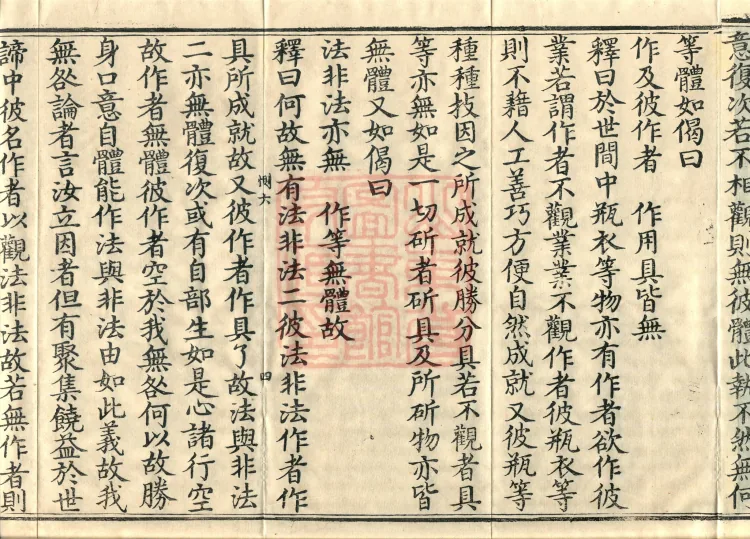 意復次若不相觀則無彼體此執不然無何
等體如偈曰
作及彼作者　作用具皆無
釋曰於世間中瓶衣等物亦有作者欲作彼
業若謂作者不觀業業不觀作者彼瓶衣等
則不藉人工善巧方便自然成就又彼瓶等
種種技因之所成就彼勝分具若不觀者具
等亦無如是一切斫者斫具及所斫物亦皆
無體又如偈曰
法非法亦無　作等無體故
釋曰何故無有法非法二彼法非法作者作
惻六　四
具所成就故又彼作者作具了故法與非法
二亦無體復次或有自部生如是心諸行空
故作者無體彼作者空於我無咎何以故勝
身口意自體能作法與非法由如此義故我
無咎論者言汝立因者但有聚集饒益於世
諦中彼名作者以觀法非法故若無作者則